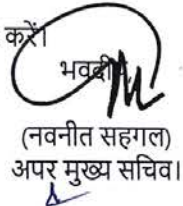 करें।
भवदीय
(नवनीत सहगल)
अपर मुख्य सचिव।